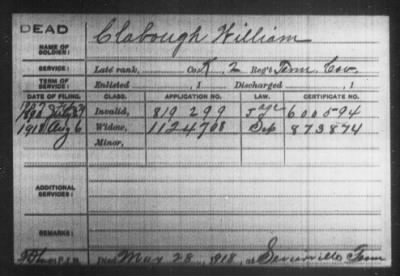 DEAD
NAME OF SOLDIER:
Clabough William
SERVICE:
Late rank, Co. K, 2 Reg't Tenn. Cav.
TERM OF SERVICE:
Enlisted , 1 Discharged , 1
DATE OF FILING. CLASS. APPLICATION NO. LAW. CERTIFICATE NO.
Invalid, 819 299 600594
1918 Aug 6 Widow, 1124708 Sep 873874
Minor,
ADDITIONAL SERVICES:
REMARKS:
Died May 28, 1918, at Sevierville Tenn